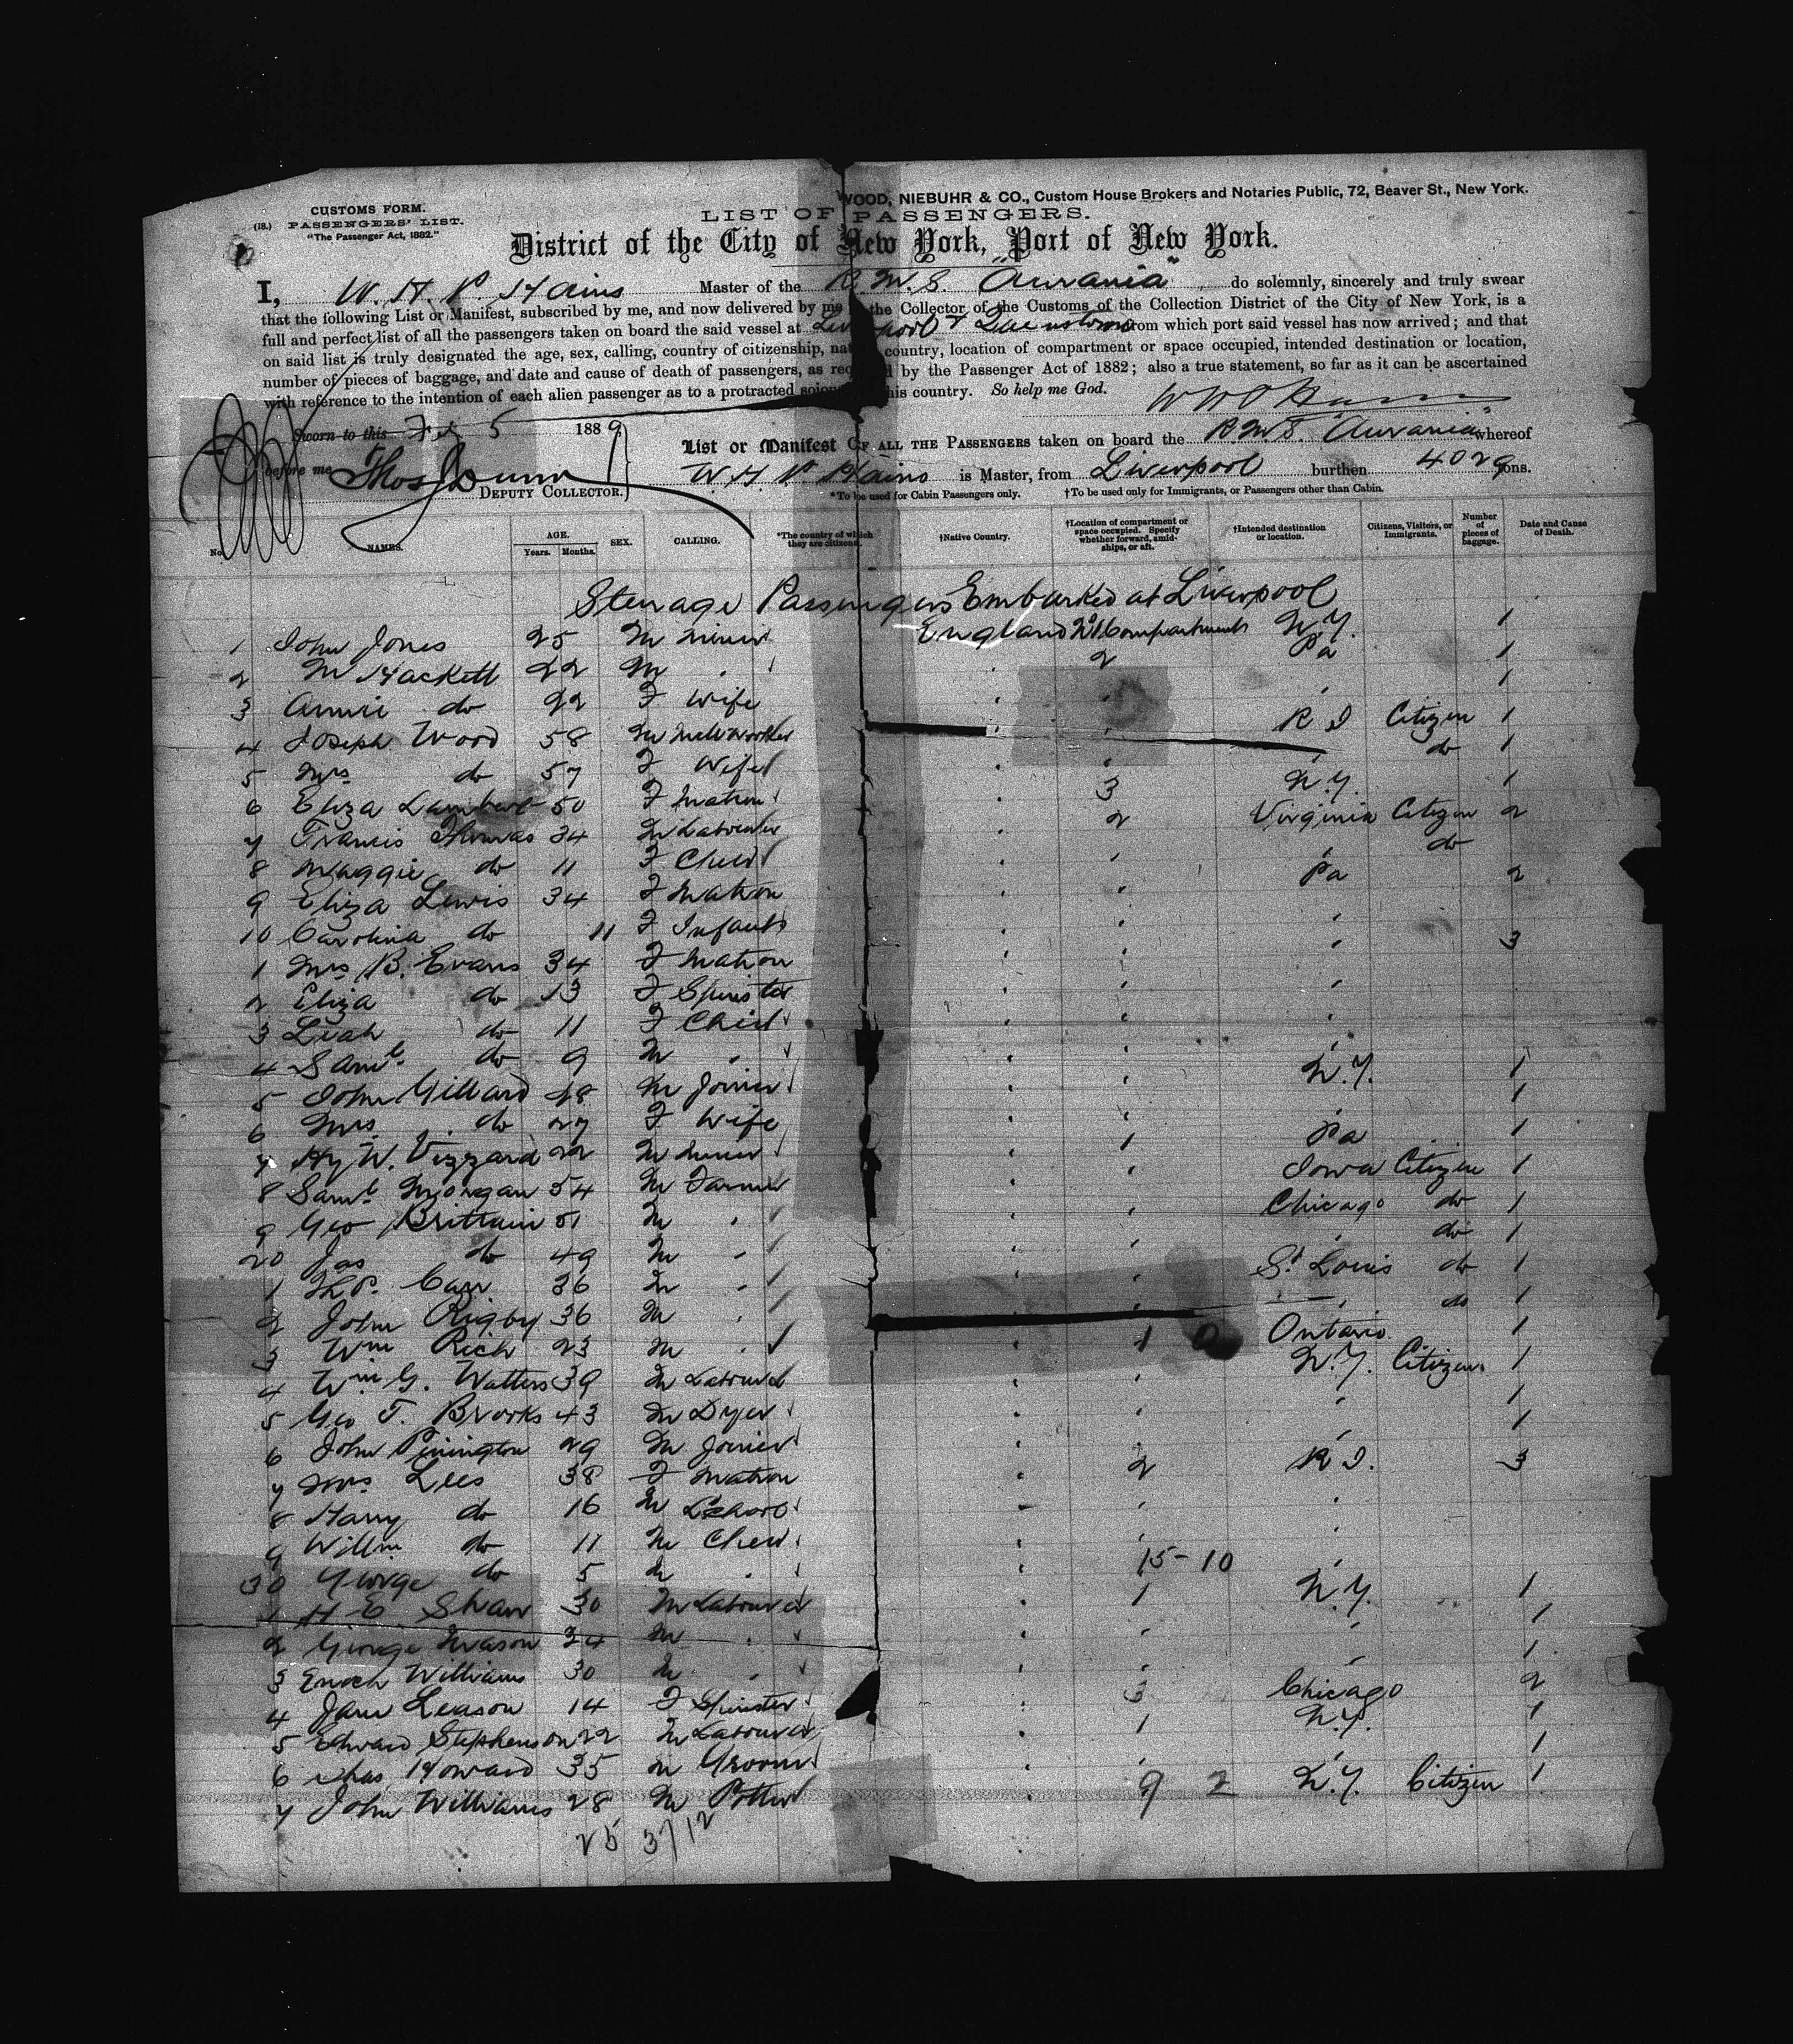 WOOD, NIEBUHR & CO., Custom House Brokers and Notaries Public, 72, Beaver St., New York.
CUSTOMS FORM.
(18.) PASSENGERS' LIST.
"The Passenger Act, 1882."
LIST OF PASSENGERS.
District of the City of New York, Port of New York.
I, W. H. P. Hains Master of the R.M.S. "Aurania" do solemnly, sincerely and truly swear
that the following List or Manifest, subscribed by me, and now delivered by me the Collector of the Customs of the Collection District of the City of New York, is a
full and perfect list of all the passengers taken on board the said vessel at Liverpool + Queenstown from which port said vessel has now arrived; and that
on said list is truly designated the age, sex, calling, country of citizenship, nat country, location of compartment or space occupied, intended destination or location,
number of pieces of baggage, and date and cause of death of passengers, as req d by the Passenger Act of 1882; also a true statement, so far as it can be ascertained
with reference to the intention of each alien passenger as to a protracted sojou his country. So help me God.
W H P Hains
Sworn to this Feb 5 1889
before me Thos Dunn
DEPUTY COLLECTOR.
List or Manifest OF ALL THE PASSENGERS taken on board the R.M.S. "Aurania" whereof
W. H. P. Hains is Master, from Liverpool burthen 4029 tons.
*To be used for Cabin Passengers only. †To be used only for Immigrants, or Passengers other than Cabin.
No. NAMES. AGE. Years. Months. SEX. CALLING. *The country of which they are citizens. †Native Country. †Location of compartment or space occupied. Specify whether forward, amidships, or aft. †Intended destination or location. Citizens, Visitors, or Immigrants. Number of pieces of baggage. Date and Cause of Death.
Steerage Passengers Embarked at Liverpool
1 John Jones 25 M Miner England No 1 Compartment N.Y. 1
2 M Hackett 22 M " " 2 Pa 1
3 Annie do 22 F Wife " " " 1
4 Joseph Wood 58 M Millworker " " R I Citizen 1
5 Mrs do 57 F Wife " " " do 1
6 Eliza Lambert 50 F Matron " 3 N.Y. 1
7 Francis Thomas 34 M Labourer " 2 Virginia Citizen 2
8 Maggie do 11 F Child " " " do
9 Eliza Lewis 34 F Matron " " Pa 2
10 Carolina do 11 F Infant " " "
1 Mrs B. Evans 34 F Matron " " " 3
2 Eliza do 13 F Spinster " " "
3 Leah do 11 F Child " " "
4 Saml do 9 M " " " "
5 John Gillard 28 M Joiner " " N.Y. 1
6 Mrs do 27 F Wife " " " 1
7 Hy W. Vizzard 22 M Miner " 1 Pa 1
8 Saml Morgan 54 M Farmer " " Iowa Citizen 1
9 Geo Brittain 51 M " " " Chicago do 1
20 Jas do 49 M " " " " do 1
1 Carr 36 M " " " St Louis do 1
2 John Rigby 36 M " " " " do 1
3 Wm Rich 23 M " " 1 Ontario 1
4 Wm G. Watters 39 M Labourer " " N.Y. Citizen 1
5 Geo T. Brooks 43 M Dyer " " " 1
6 John Pinington 29 M Joiner " " " 1
7 Mrs Lees 38 F Matron " 2 R I. 3
8 Harry do 16 M " " "
9 Willm do 11 M Child " " "
30 George do 5 M " " 15-10 "
1 H E Shaw 30 M Labourer " 1 N.Y. 1
2 George Mason 24 M " " " " 1
3 Enoch Williams 30 M " " " " 1
4 Jane Leason 14 F Spinster " 3 Chicago 2
5 Edward Stephenson 22 M Labourer " 1 N.Y. 1
6 Chas Howard 35 M Groom " " " 1
7 John Williams 28 M Potter " 9 2 N.Y. Citizen 1
25 3/12